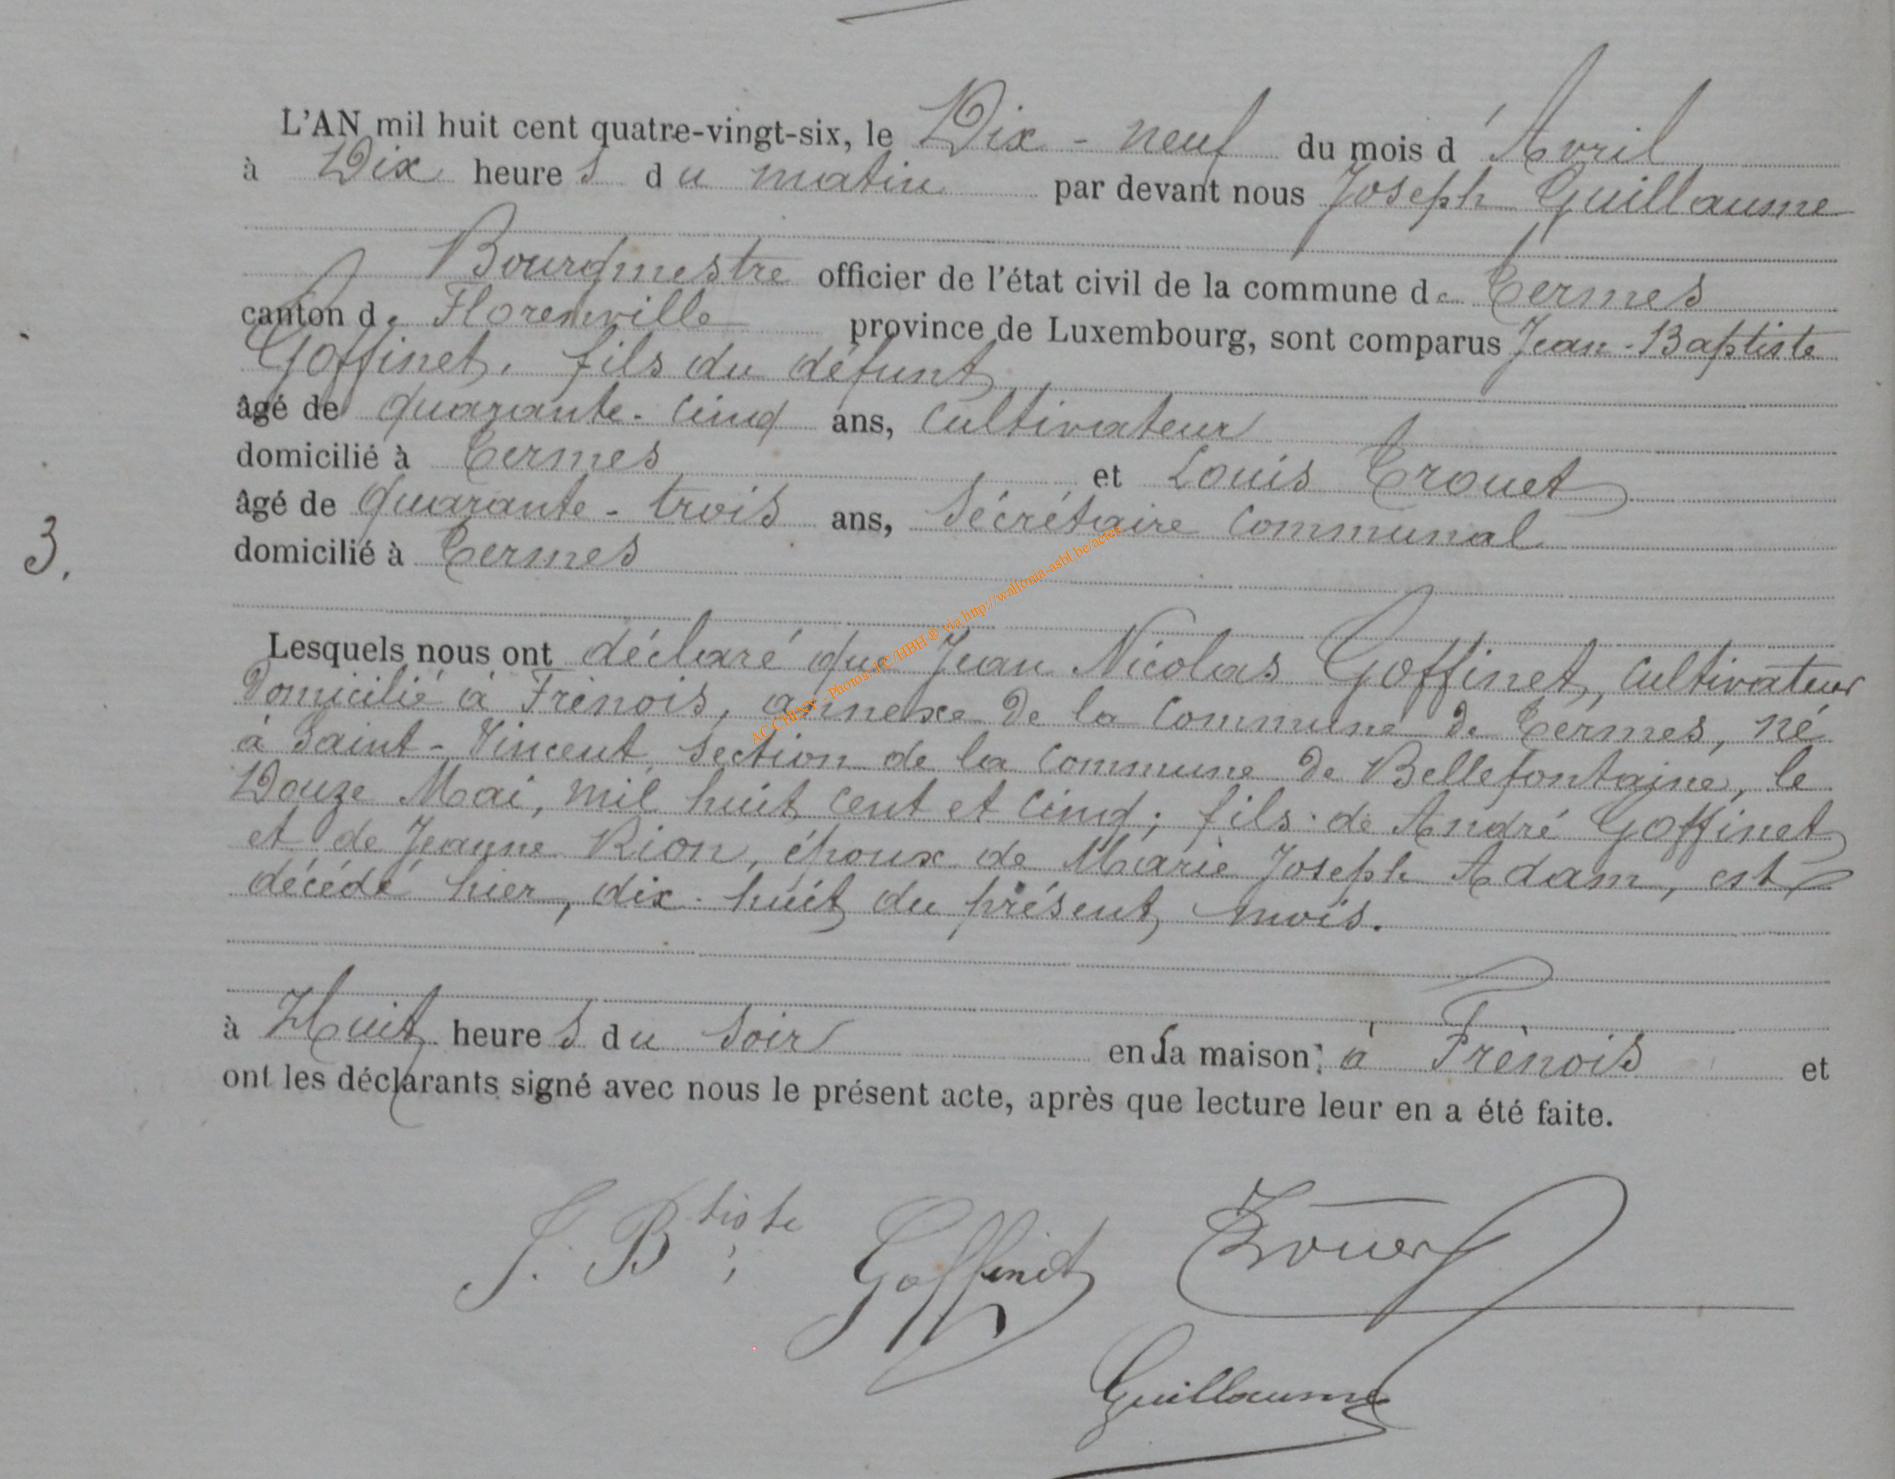 L'AN mil huit cent quatre-vingt-six, le Dix-neuf du mois d'Avril
à Dix heures du matin par devant nous Joseph Guillaume
Bourgmestre officier de l'état civil de la commune de Termes
canton de Florenville province de Luxembourg, sont comparus Jean-Baptiste
Goffinet, fils du défunt,
âgé de quarante-cinq ans, cultivateur
domicilié à Termes et Louis Trouet
âgé de quarante-trois ans, Sécrétaire communal
domicilié à Termes
3.
Lesquels nous ont déclaré que Jean Nicolas Goffinet, cultivateur
domicilié à Frènois, annexe de la commune de Termes, né
à Saint-Vincent, section de la commune de Bellefontaine, le
Douze Mai, mil huit cent et cinq; fils de André Goffinet
et de Jeanne Rion, époux de Marie Joseph Adam, est
décédé hier, dix-huit du présent mois.
à Huit heures du soir en sa maison, à Frènois et
ont les déclarants signé avec nous le présent acte, après que lecture leur en a été faite.
J. Btiste Goffinet Trouet
Guillaume
AC CHINY - Photos: LC/HBH © via http://wallonia-asbl.be/actes